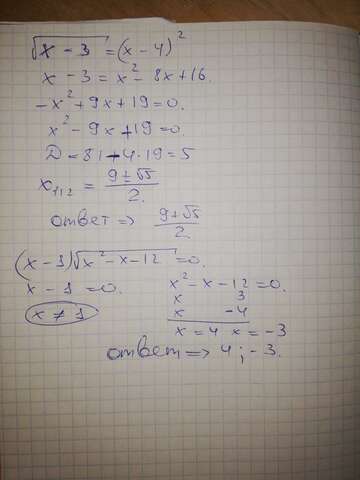 √(x - 3) = (x - 4)²
x - 3 = x² - 8x + 16.
-x² + 9x + 19 = 0.
x² - 9x + 19 = 0.
D = 81 - 4·19 = 5
x₁,₂ = (9 ± √5)/2.
ответ => (9 + √5)/2.
(x - 1)√(x² - x - 12) = 0.
x - 1 = 0.
x ≠ 1
x² - x - 12 = 0.
x 3
x -4
x = 4 x = -3
ответ => 4; -3.